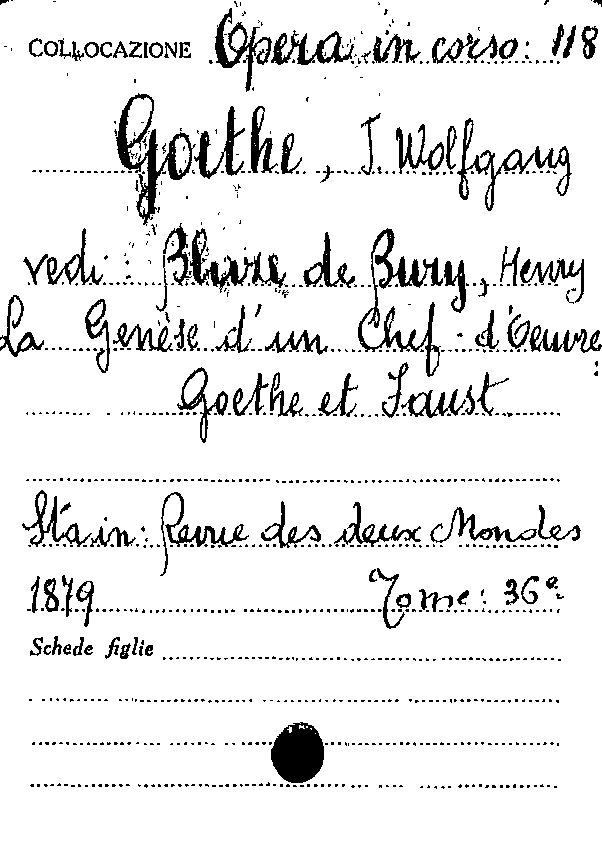 COLLOCAZIONE Opera in corso: 118
Goethe, J. Wolfgang
vedi: Blaze de Bury, Henry
La Genèse d'un Chef-d'Oeuvre:
Goethe et Faust.
Sta in: Revue des deux Mondes
1879 Tome: 36e.
Schede figlie